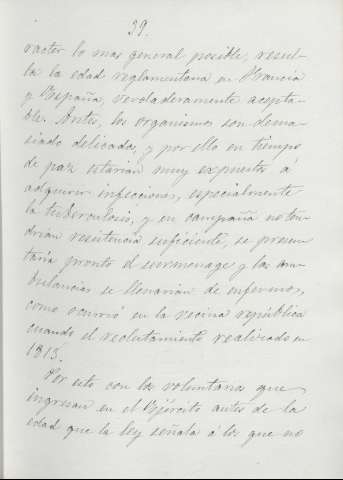 39.
racter lo mas general posible, resul-
ta la edad reglamentaria en Francia
y España, verdaderamente acepta-
ble. Antes, los organismos son dema-
siado delicados, y por ello en tiempo
de paz estarian muy expuestos á
adquirir infecciones, especialmente
la tuberculosis, y en campaña no ten-
drian resistencia suficiente, se presen-
taria pronto el surmenage y las am-
bulancias se llenarian de enfermos,
como ocurrió en la vecina república
cuando el reclutamiento realizado en
1813.
Por esto con los voluntarios que
ingresan en el Ejército antes de la
edad que la ley señala á los que no